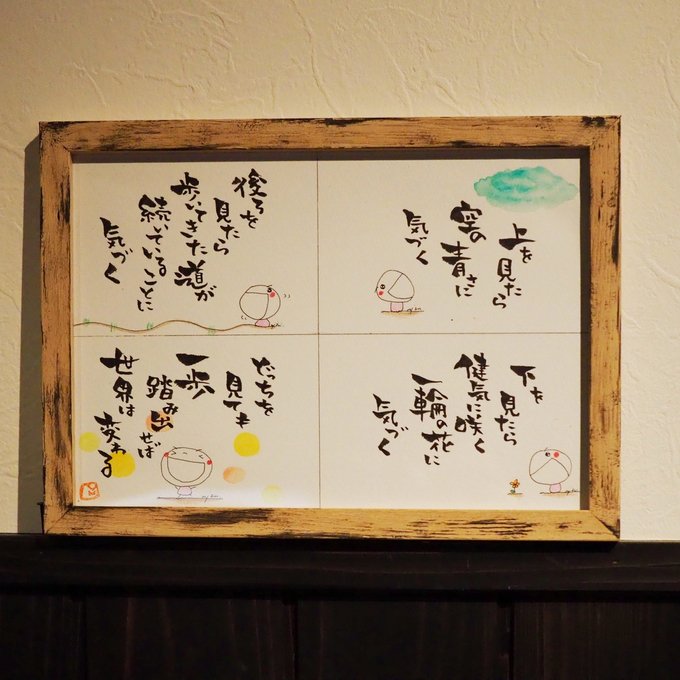 上を見たら
空の青さに
気づく
下を見たら
健気に咲く
一輪の花に
気づく
後ろを
見たら
歩いてきた道が
続いていることに
気づく
どっちを
見ても
一歩
踏み出せば
世界は
変わる